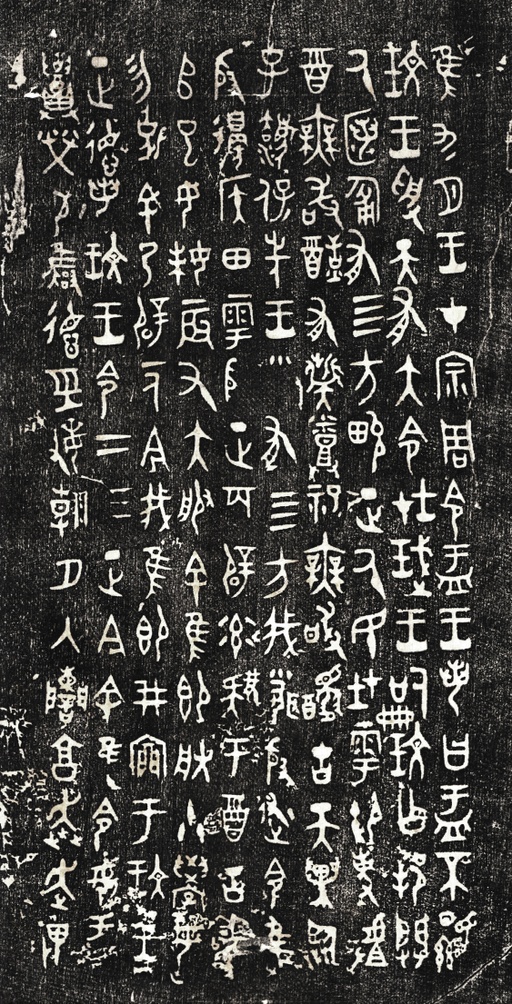 隹九月王才宗周令盂王若曰盂不顯
玟王受天有大令在珷王嗣玟乍邦闢
氒匿匍有四方畯正氒民在雩御事䖒
酉無敢酖有髭烝祀無敢醻古天異臨
子灋保先王有四方我聞殷述令隹
殷邊侯田雩殷正百辟率肄于酉古喪
𠂤巳女妹辰又大服余隹即朕小學女
勿克余乃辟一人今我隹即井㐭于玟王
正德若玟王令二三正今余隹令女盂
召榮敬雝德巠敏朝夕入讕享奔走畏